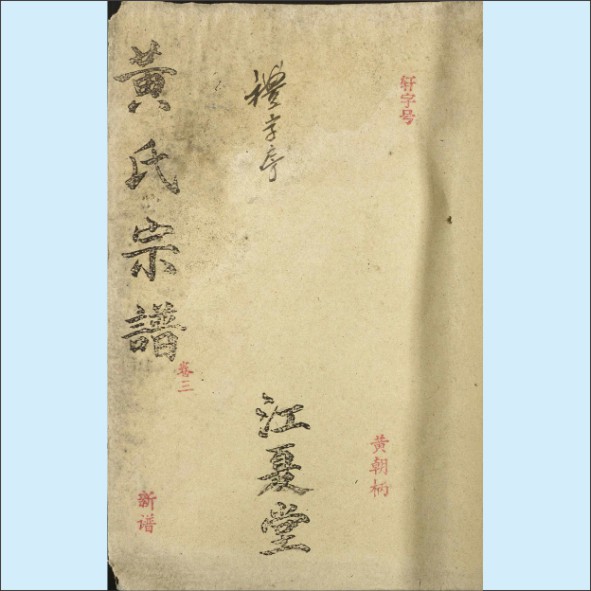 轩字号
黄朝柄
禮字
江夏堂
黃氏宗譜
卷三
新谱